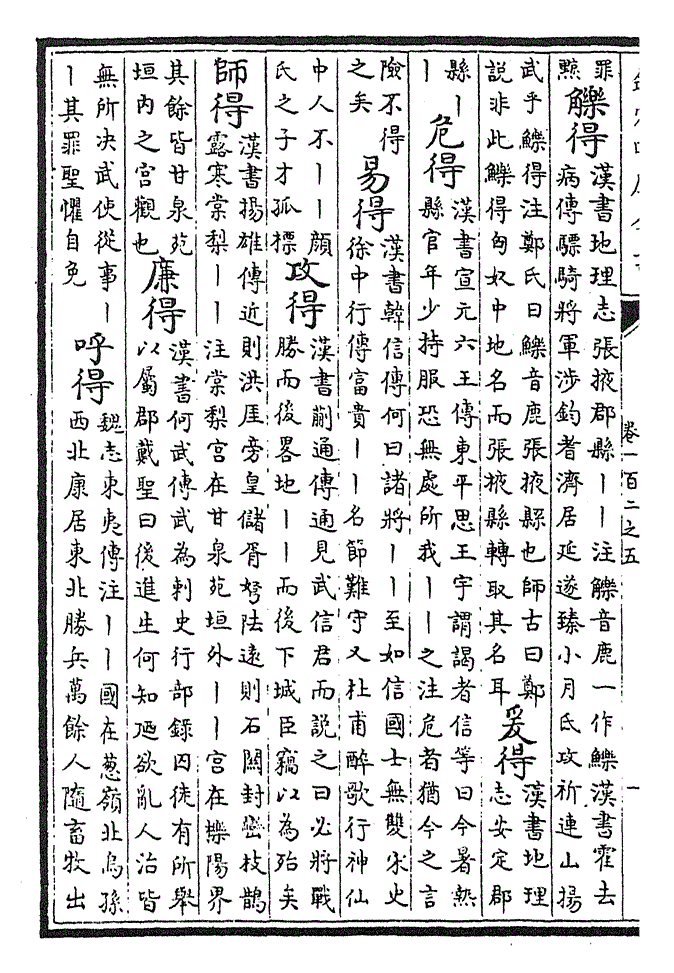 欽定四庫全書
卷一百二之五
一
罪
黥
觻得
漢書地理志張掖郡縣｜｜注觻音鹿一作鱳漢書霍去
病傳驃騎將軍涉鈞耆濟居延遂臻小月氏攻祈連山揚
武乎鱳得注鄭氏曰鱳音鹿張掖縣也師古曰鄭
說非此鱳得匈奴中地名而張掖縣轉取其名耳
爰得
漢書地理
志安定郡
縣｜
｜
危得
漢書宣元六王傳東平思王宇謂謁者信等曰今暑熱
縣官年少持服恐無處所我｜｜之注危者猶今之言
險不得
之矣
易得
漢書韓信傳何曰諸將｜｜至如信國士無雙宋史
徐中行傳富貴｜｜名節難守又杜甫醉歌行神仙
中人不｜｜顏
氏之子才孤標
攻得
漢書蒯通傳通見武信君而說之曰必將戰
勝而後畧地｜｜而後下城臣竊以為殆矣
師得
漢書揚雄傳近則洪厓旁皇儲胥弩阹遠則石關封巒枝鵲
露寒棠梨｜｜注棠梨宮在甘泉苑垣外｜｜宮在櫟陽界
其餘皆甘泉苑
垣内之宮觀也
廉得
漢書何武傳武為刺史行部錄囚徒有所舉
以屬郡戴聖曰後進生何知廼欲亂人治皆
無所决武使從事｜
｜其罪聖懼自免
呼得
魏志東夷傳注｜｜國在葱嶺北烏孫
西北康居東北勝兵萬餘人隨畜牧出